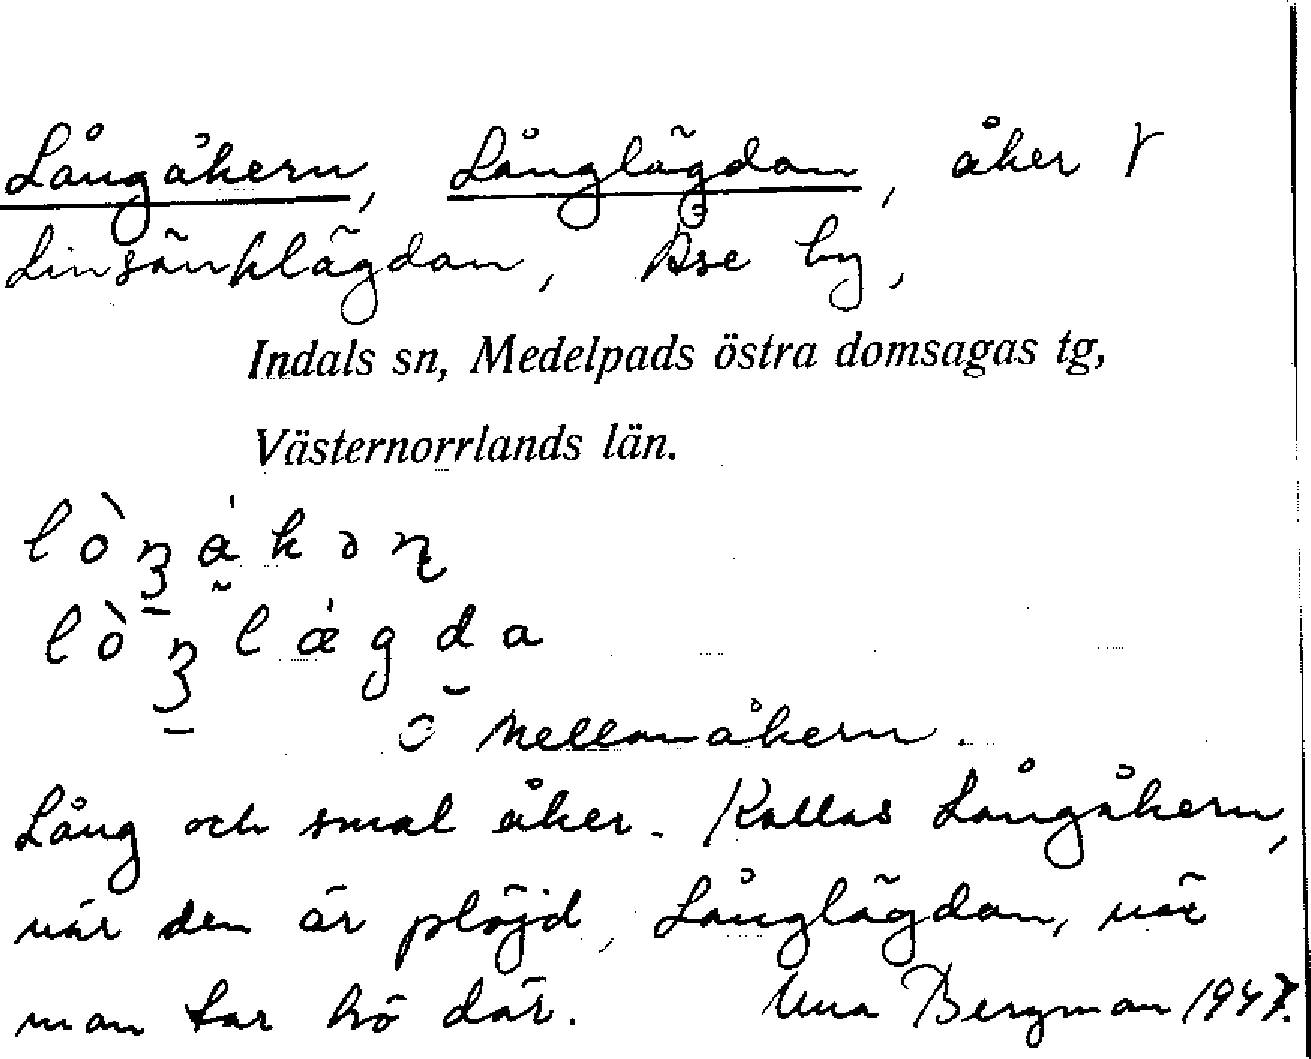 Långåkern, Långlägdan, åker V
Linsänklägdan, Åse by,
Indals sn, Medelpads östra domsagas tg,
Västernorrlands län.
Ö Mellanåkern.
Lång och smal åker. Kallas Långåkern,
när den är plöjd, Långlägdan, när
man tar hö där. Una Bergman 1947.